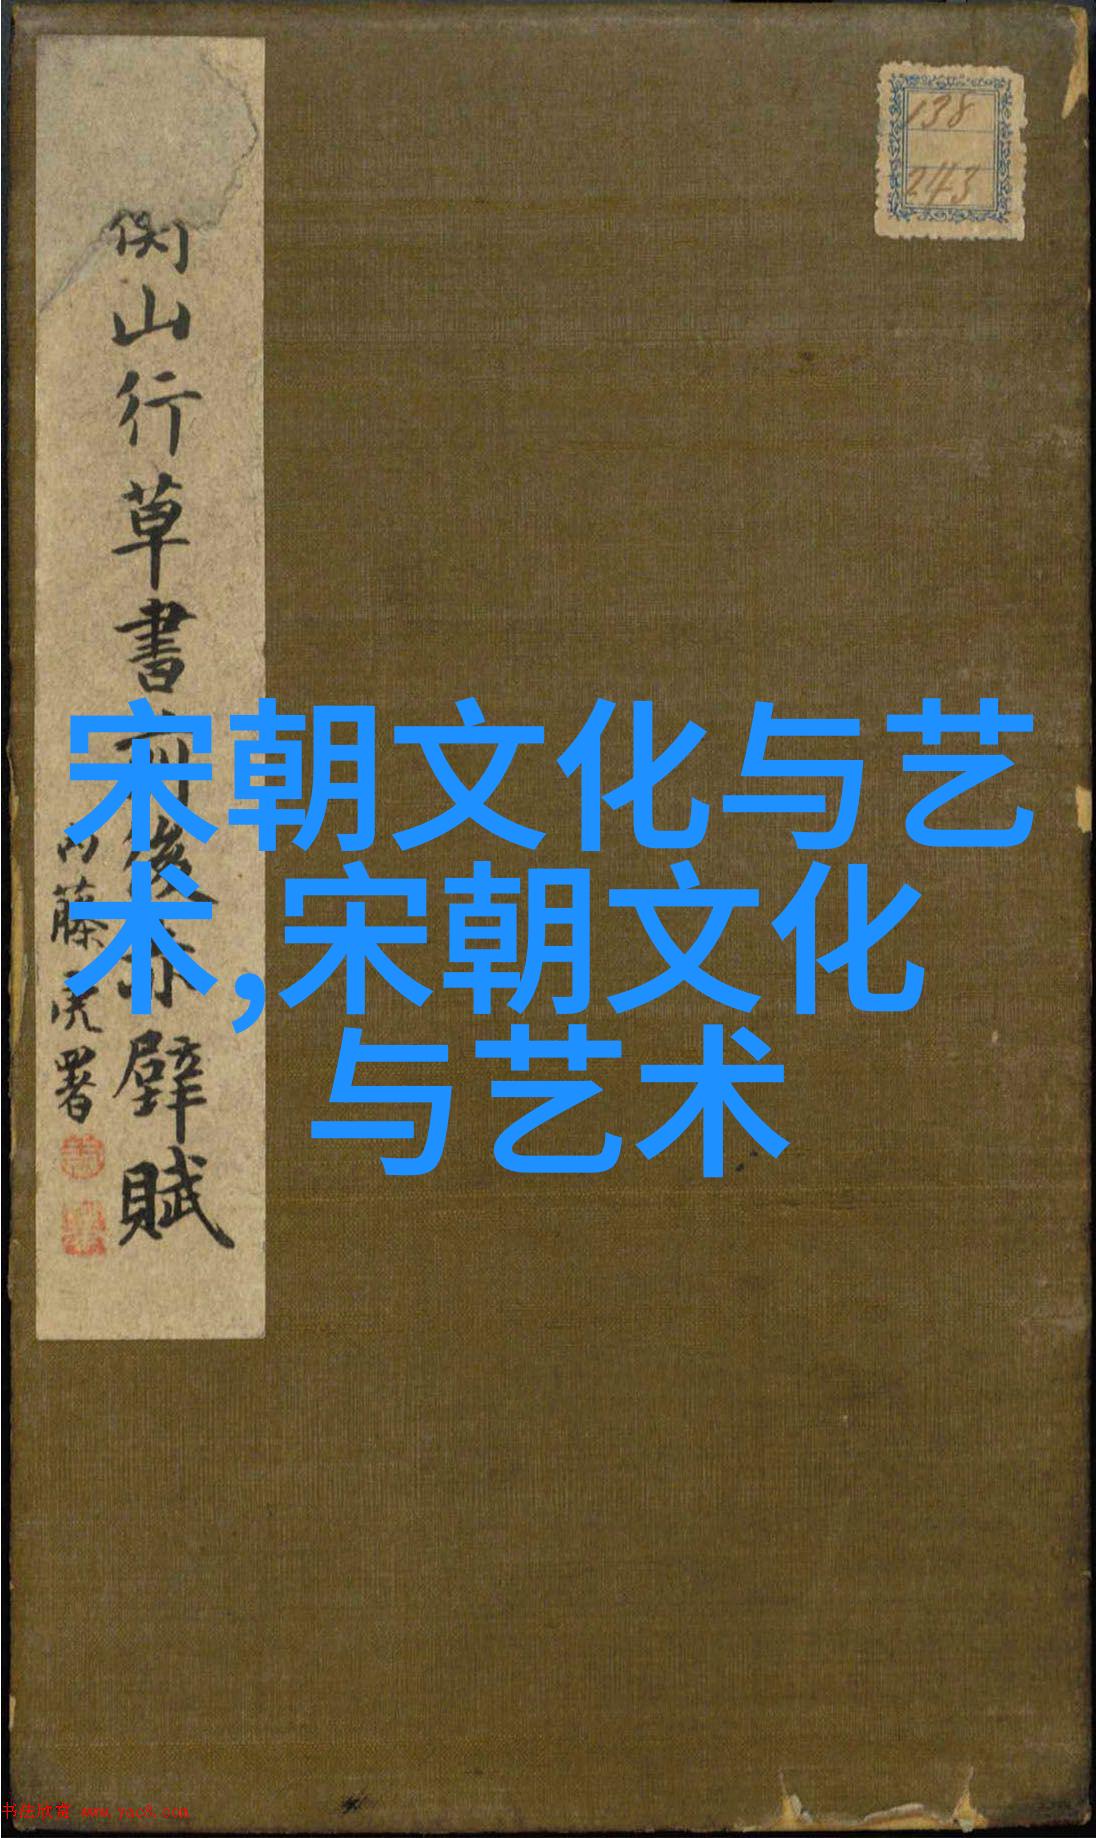 138
243
侷山行草書前後赤壁賦
内藤虎署
宋朝文化与艺
术,宋朝文化
与艺术
书法欣赏 www.yac8.com